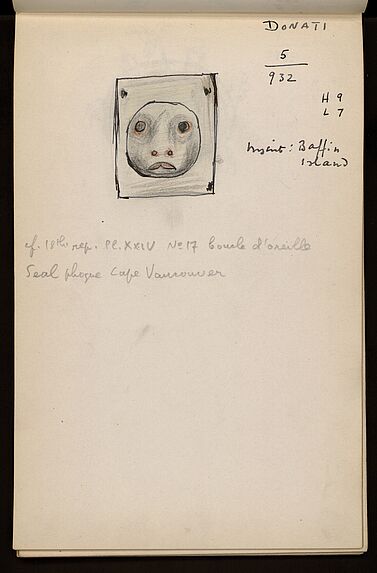 DONATI
5
932
H 9
L 7
: Baffin
Island
cf. 18th rep. Pl. XXIV No 17 boucle d'oreille
Seal phoque Cape Vancouver